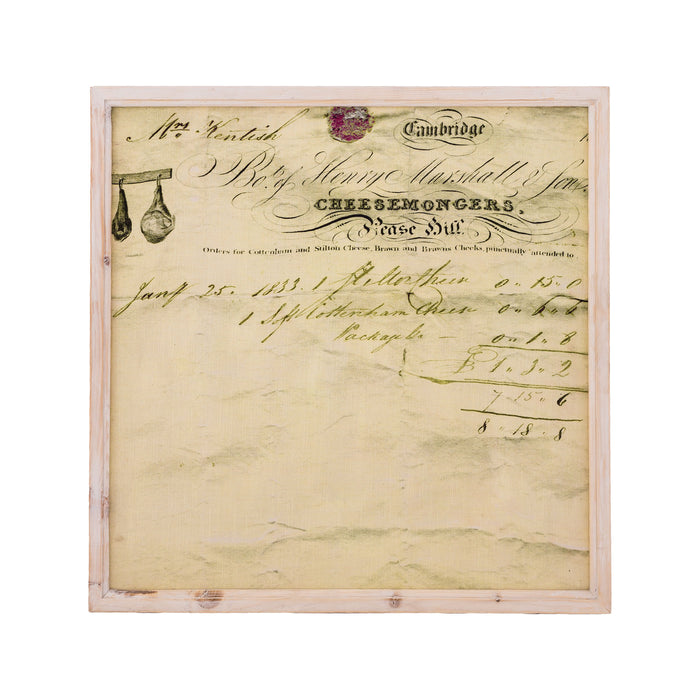 Mrs. Kentish
Cambridge
Bot. of Henry Marshall & Sons,
CHEESEMONGERS,
Pease Hill.
Orders for Cottenham and Stilton Cheese, Brawn and Brawns Cheeks, punctually attended to
Jany 25. 1833. 1 Cheese 0 " 15 " 0
1 Soft Cottenham Cheese 0 " 6 " 6
Package &c — 0 " 1 " 8
£ 1 " 3 " 2
7 " 15 " 6
8 " 18 " 8